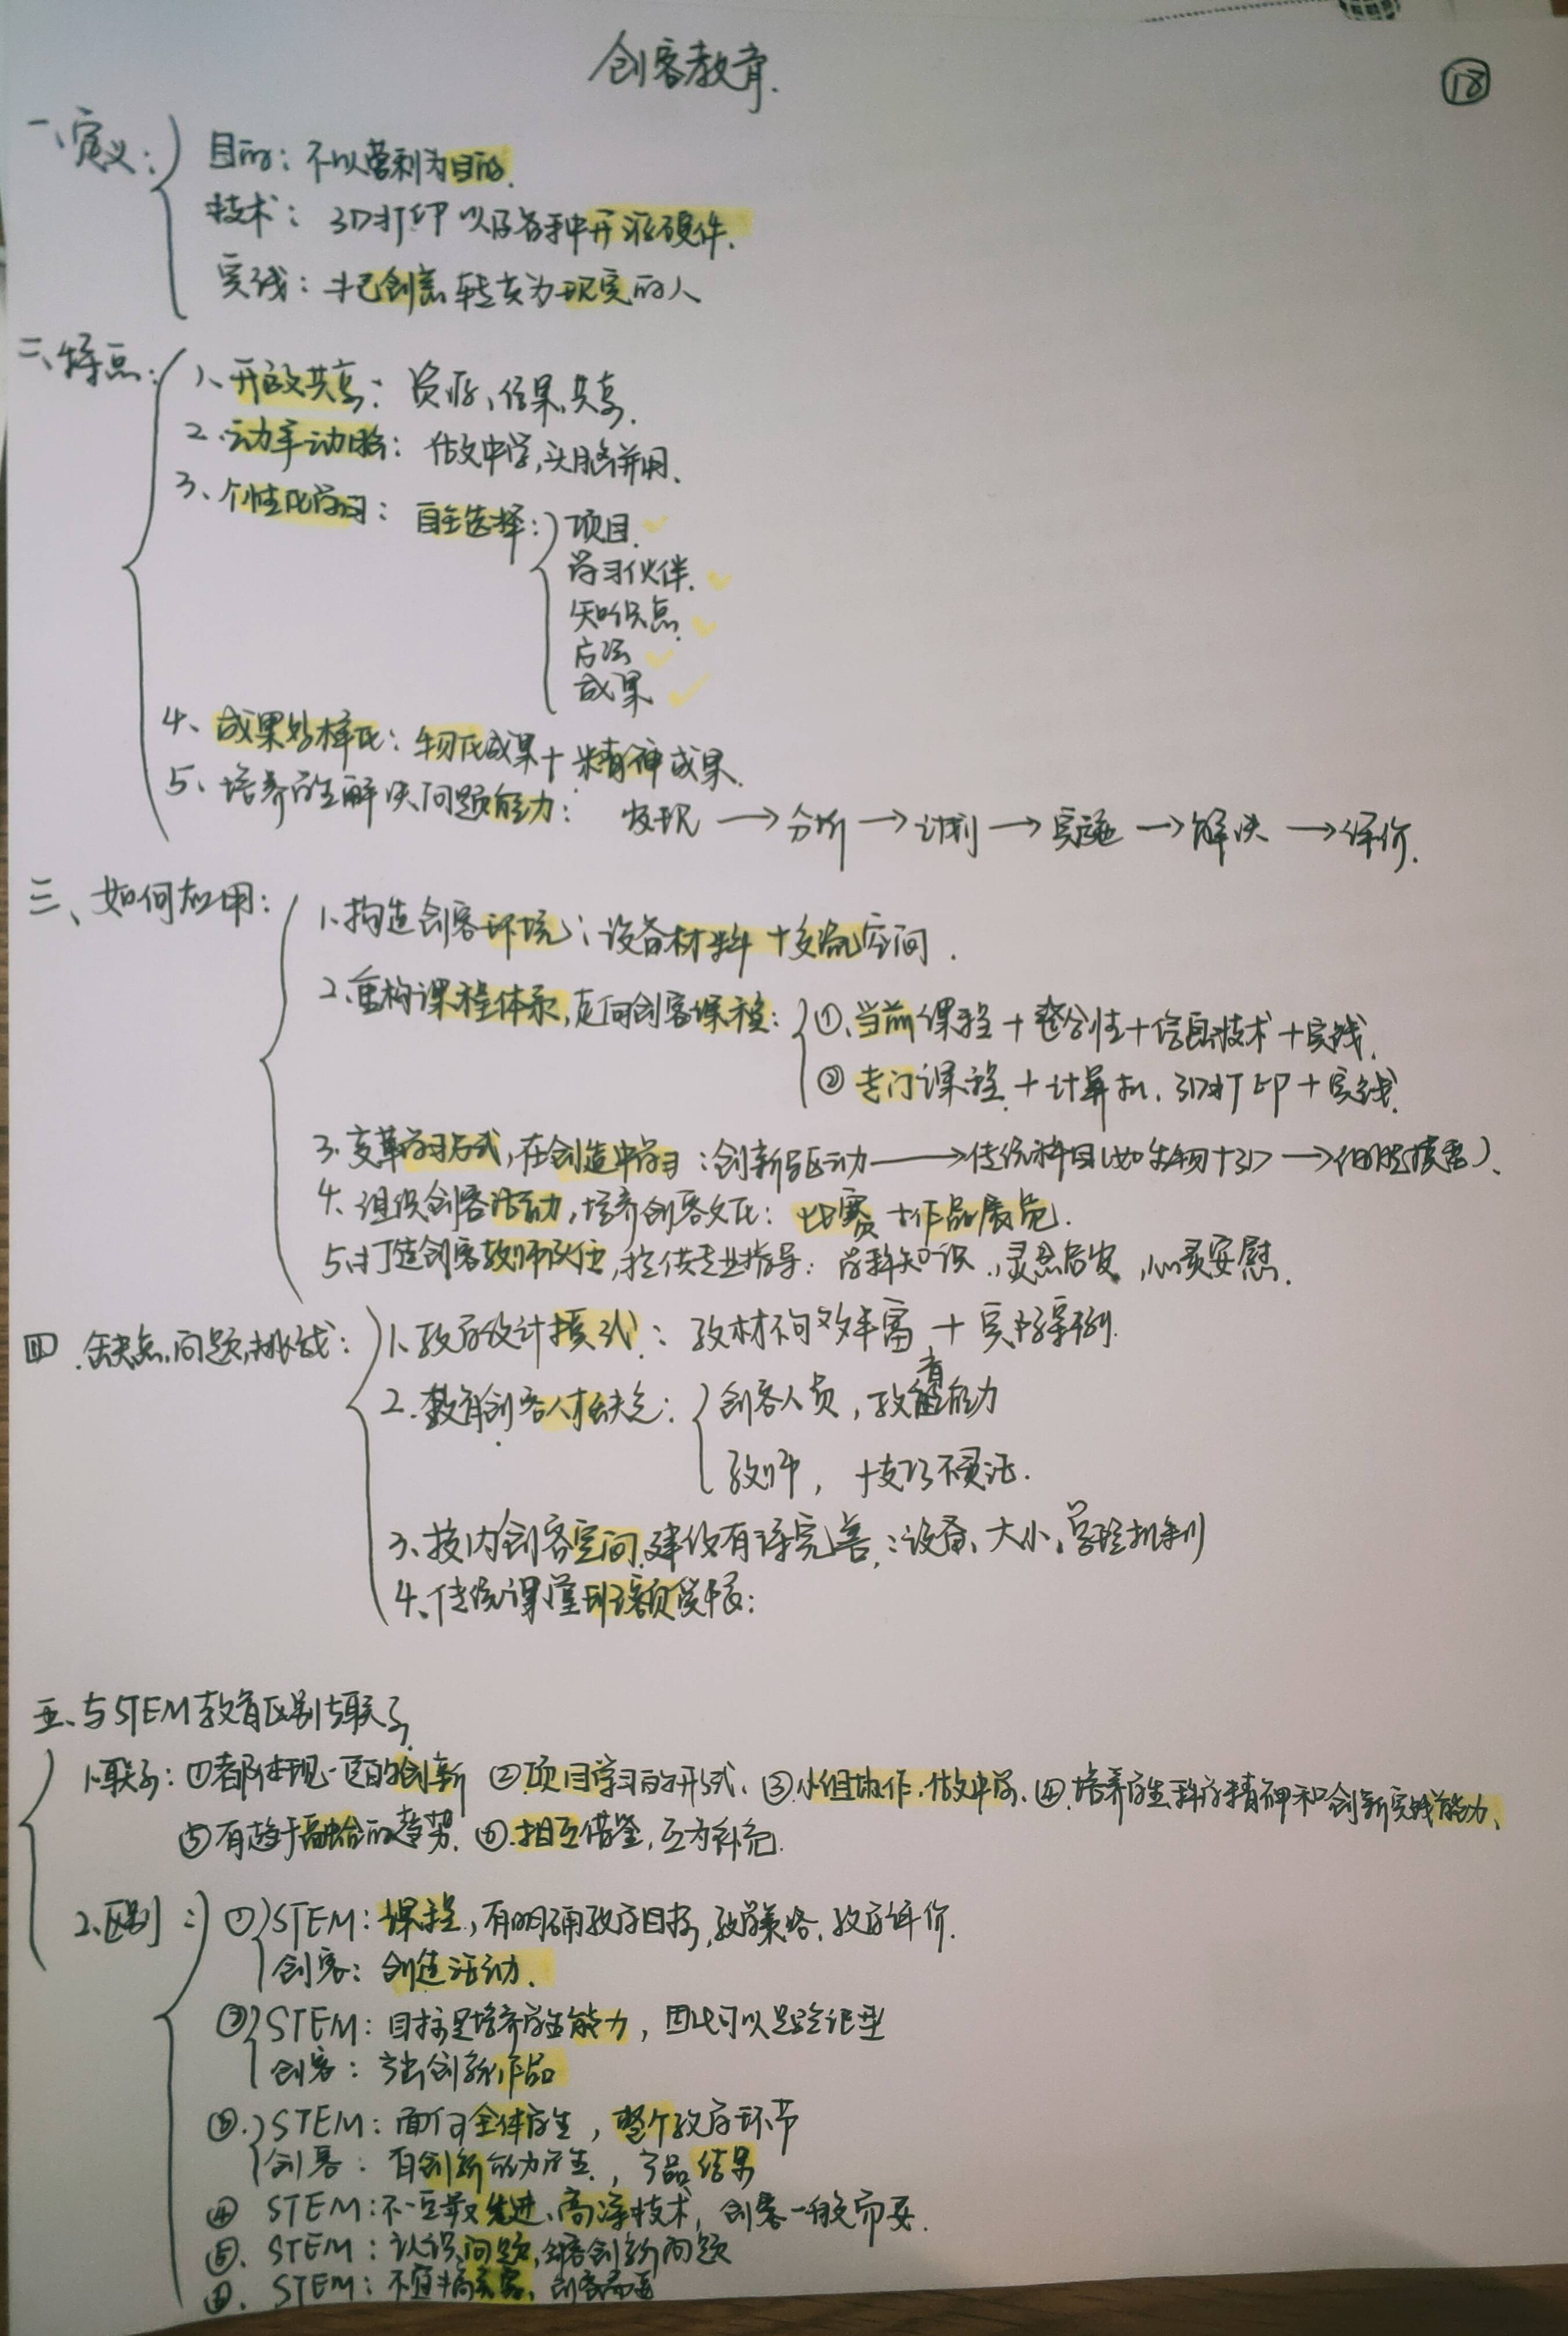 创客教育.
18
一、定义:
目的: 不以营利为目的.
技术: 3D打印以及各种开源硬件.
实践: 把创意转变为现实的人
二、特点:
1、开放共享: 资源、结果共享.
2.动手动脑: 做中学,头脑并用.
3、个性化学习: 自主选择:
项目.
学习伙伴.
知识点.
方法
成果
4、成果多样化: 物化成果+精神成果.
5、培养学生解决问题能力: 发现→分析→计划→实施→解决→评价.
三、如何应用:
1.构造创客环境: 设备材料+交流空间.
2.重构课程体系,走向创客课程:
①.当前课程+整合性+信息技术+实践.
②专门课程+计算机、3D打印+实践.
3.变革学习方式,在创造中学习: 创新驱动→传统科目(如生物+3D→细胞模型).
4.组织创客活动,培养创客文化: 比赛+作品展览.
5.打造创客教师队伍,提供专业指导: 学科知识、灵感启发,心灵安慰.
四.缺点,问题,挑战:
1、教学设计模式: 教材不够丰富+实际案例.
2.教育创客人才缺乏:
创客人员,教育能力
教师,技巧不灵活.
3、校内创客空间建设有待完善: 设备、大小、管理机制
4、传统课堂
五、与STEM教育区别与联系
1.联系: ①都体现一定的创新 ②项目学习的形式、③.小组协作、做中学、④.培养学生科学精神和创新实践能力、
⑤有趋于融合的趋势. ⑥.相互借鉴,互为补充.
2.区别:
① STEM: 课程,有明确教学目标,教学策略、教学评价.
创客: 创造活动.
② STEM: 目标是培养学生能力,因此可以是验证型
创客: 产出创新作品
③. STEM: 面向全体学生,整个教学环节
创客: 有创新能力学生.,产品结果
④ STEM: 不一定要先进、高深技术,创客一般需要.
⑤. STEM: 认识问题,创客创新问题
⑥. STEM: 不直接 创客需要